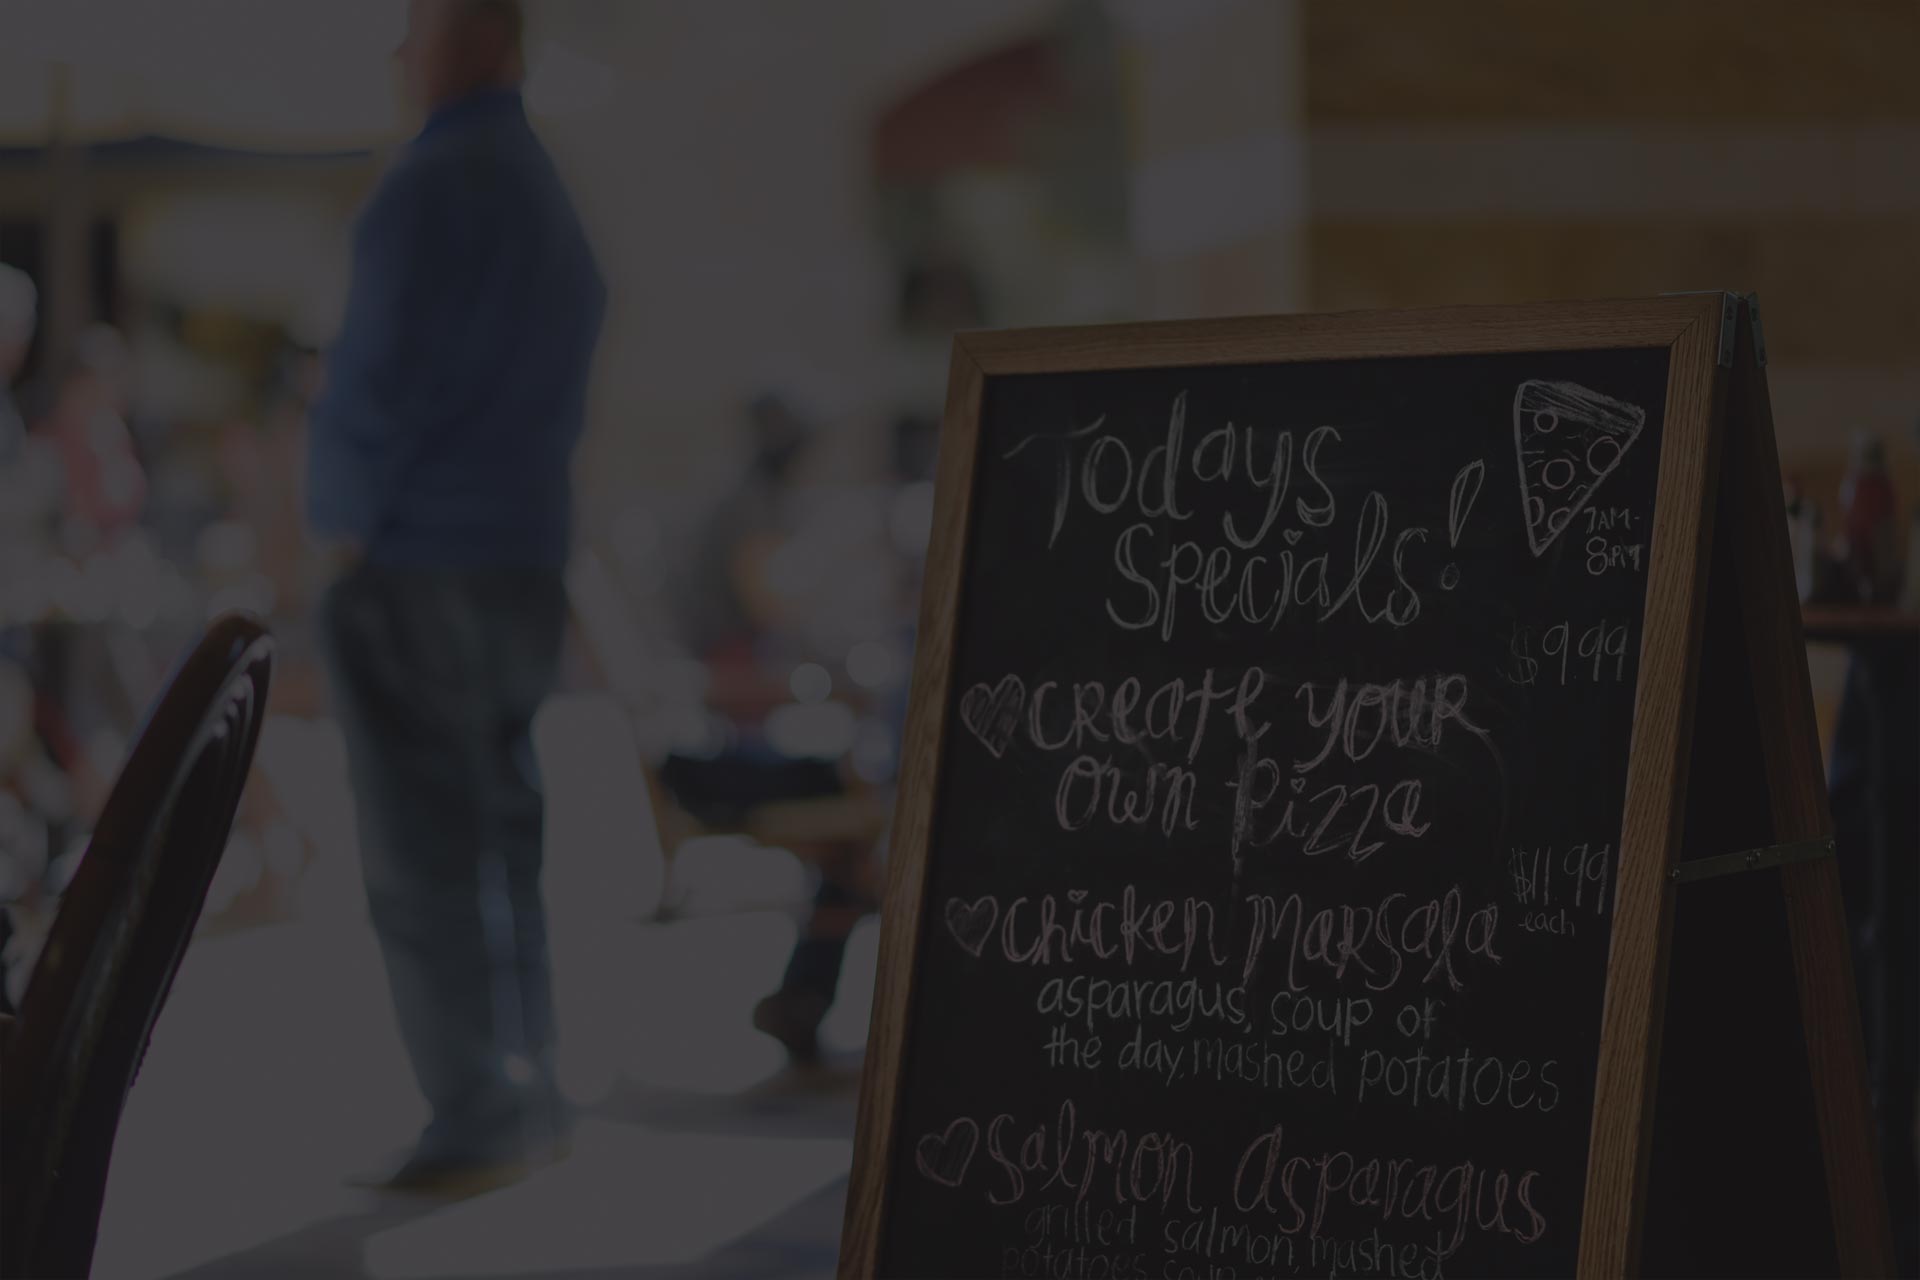 Todays
Specials!
7AM-
8PM
$9.99
Create your
Own Pizza
$11.99
each
Chicken Marsala
asparagus, soup of
the day, mashed potatoes
Salmon Asparagus
grilled salmon, mashed
potatoes, soup